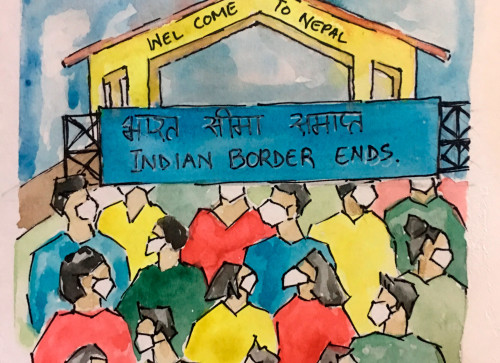 WEL COME TO NEPAL
भारत सीमा समाप्त
INDIAN BORDER ENDS.